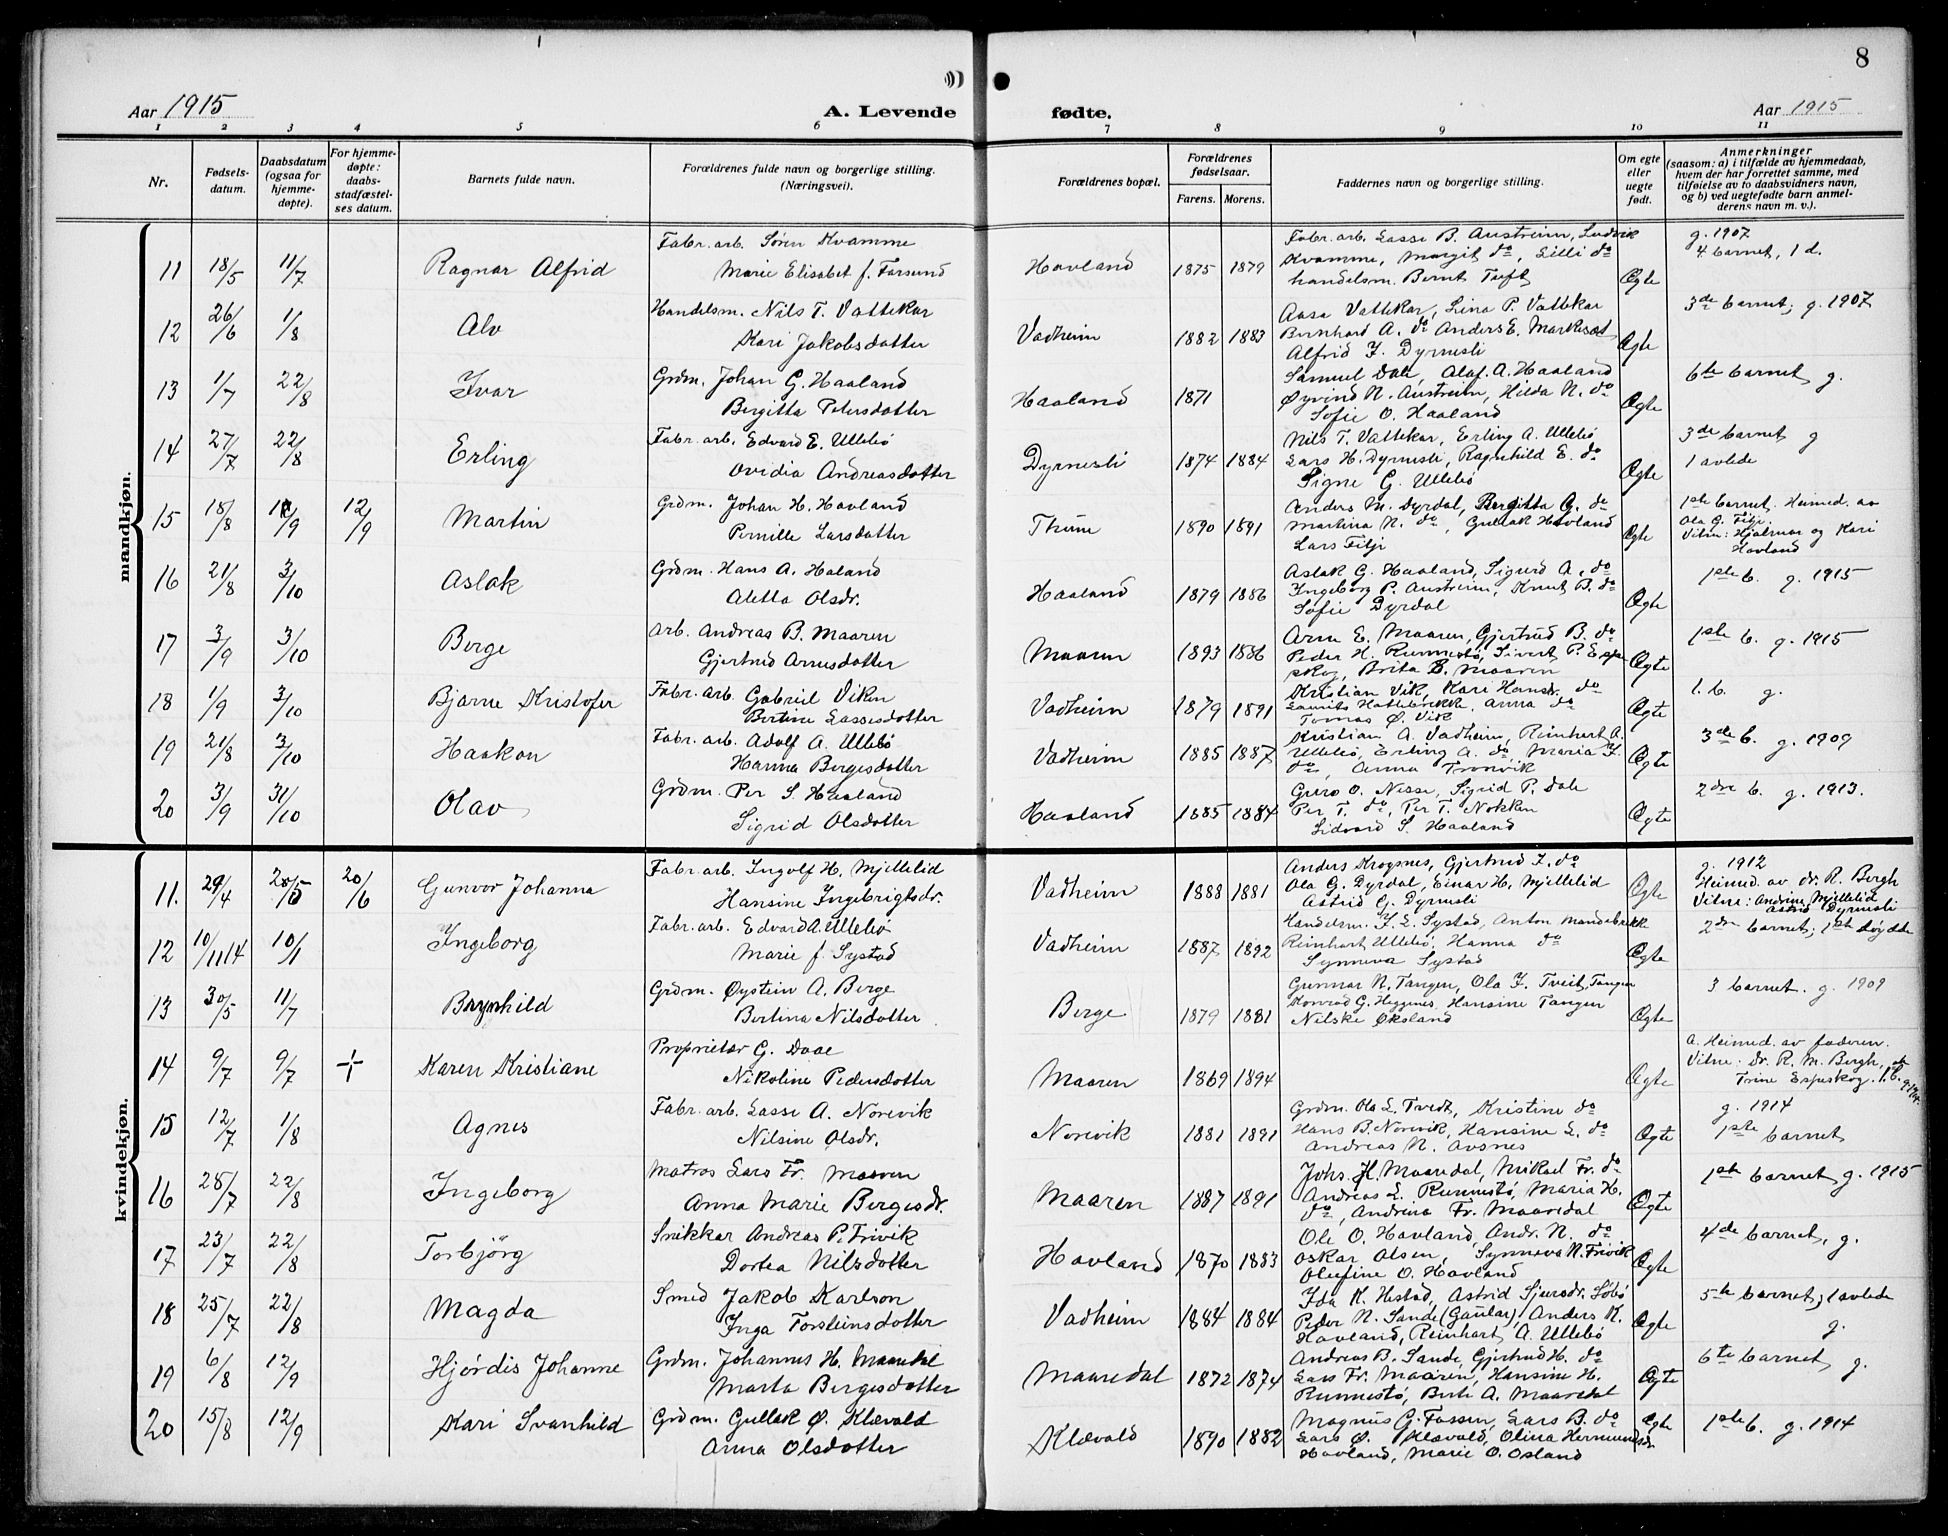 8
Aar 1915 A. Levende fødte. Aar 1915
1 2 3 4 5 6 7 8 9 10 11
Nr.
Fødsels-
datum.
Daabsdatum
(ogsaa for
hjemme-
døpte).
For hjemme-
døpte:
daabs-
stadfæstel-
ses datum.
Barnets fulde navn.
Forældrenes fulde navn og borgerlige stilling.
(Næringsvei).
Forældrenes bopæl.
Forældrenes
fødselsaar.
Farens. Morens.
Faddernes navn og borgerlige stilling.
Om egte
eller
uegte
født.
Anmerkninger
(saasom: a) i tilfælde av hjemmedaab,
hvem der har forrettet samme, med
tilføielse av to daabsvidners navn,
og b) ved uegtefødte barn anmel-
derens navn m. v.).
mandkjøn.
11 18/5 11/7 Ragnar Alfrid
Fabr. arb. Søren Kvamme
Marie Elisabet f. Farsund
Havland 1875 1879
Fabr. arb. Lasse B. Austreim, Ludvik
Kvamme, Margit do, Lilli do
handelsm. Bernt Tuft
Ægte
g. 1907
4 barnet, 1 d.
12 26/6 1/8 Alv
Handelsm. Nils T. Vattekar
Kari Jakobsdotter
Vadheim 1882 1883
Aasa Vattekar, Lina P. Vattekar
Bernhard A. do Anders E. Marksæt
Alfrid J. Dyrnesli
Ægte
3de barnet, g. 1907
13 1/7 22/8 Ivar
Grdm. Johan G. Haaland
Bergitta Petersdotter
Haaland 1871
Samuel Dale, Olaf A. Haaland
Øyvind N. Austreim, Hilda N. do
Sofie O. Haaland
Ægte
6te barnet g.
14 27/7 22/8 Erling
Fabr. arb. Edvard E. Ullebø
Ovidia Andreasdotter
Dyrnesli 1874 1884
Nils T. Vattekar, Erling A. Ullebø
Lars H. Dyrnesli, Ragnhild E. do
Signe G. Ullebø
Ægte
3de barnet g
1 avlede
15 18/8 12/9 12/9 Martin
Grdm. Johan H. Havland
Pernille Larsdotter
Thune 1890 1891
Anders M. Dyrdal, Bergitta G. do
Martina N. do, Gullak Havland
Lars Filji
Ægte
1ste barnet. Heimed. av
Ola G. Filji.
Vitne: Hjalmar og Kari
Havland
16 21/8 3/10 Aslak
Grdm. Hans A. Haland
Aletta Olsdr.
Haaland 1879 1886
Aslak G. Haaland, Sigurd A. do
Ingeborg P. Austreim, Knut B. do
Sofie Dyrdal
Ægte
1ste b. g. 1915
17 3/9 3/10 Berge
Arb. Andreas B. Maaren
Gjertrud Arnesdotter
Maaren 1893 1886
Arne E. Maaren, Gjertrud B. do
Peder H. Runnestø, Sivert P. Espe
skog, Brita B. Maaren
Ægte
1ste b. g. 1915
18 1/9 3/10 Bjarne Kristofer
Fabr. arb. Gabriel Viken
Bertine Lassesdotter
Vadheim 1879 1891
Kristian Vik, Kari Hansdr. do
Laurits Hattebrekk, Anna do
Tomas Ø. Vik
Ægte
1. b. g.
19 21/8 3/10 Haakon
Fabr. arb. Adolf A. Ullebø
Hanna Bergesdotter
Vadheim 1885 1887
Kristian A. Vadheim, Reinhart A.
Ullebø, Erling A. do, Maria J.
do, Anna Tronvik
Ægte
3de b. g. 1909
20 3/9 31/10 Olav
Grdm. Per S. Haaland
Sigrid Olsdotter
Haaland 1885 1884
Guro O. Nesse, Sigrid P. Dale
Per T. do, Per T. Nokken
Sidvard S. Haaland
Ægte
2dre b. g. 1913.
kvindekjøn.
11. 29/4 20/5 20/6 Gunvor Johanna
Fabr. arb. Ingolf H. Mjellelid
Hansine Ingebrigtsdr.
Vadheim 1888 1881
Anders Krogsnes, Gjertrud I. do
Ola G. Dyrdal, Einar H. Mjellelid
Astrid G. Dyrnesli
Ægte
g. 1912
Heimed. av dr. R. Bergh
Vitne: Andrine Mjellelid
Astrid Dyrnesli
12 10/11 14 10/1 Ingeborg
Fabr. arb. Edvard A. Ullebø
Marie f. Systad
Vadheim 1887 1892
Handelsm. J. L. Systad, Anton Mandebrekk
Reinhart Ullebø, Hanna do
Synneva Systad
Ægte
2dre barnet; 1ste døydde
13 30/5 11/7 Brynhild
Grdm. Øystein A. Berge
Bertina Nilsdotter
Berge 1879 1881
Gunnar N. Tangen, Ola J. Tveit, Tangen
Konrad G. Heggenes, Hansine Tangen
Nilske Øksland
Ægte
3 barnet. g. 1909
14 9/7 9/7 + Karen Kristiane
Proprietær G. Daae
Nikoline Pedersdotter
Maaren 1869 1894
Ægte
A. Heimed. av faderen.
Vitne: Dr. R. M. Bergh, og
Trine Espeskog. 1. b. g. 1914.
15 12/7 1/8 Agnes
Fabr. arb. Lasse A. Norevik
Nilsine Olsdr.
Norevik 1881 1891
Grdm. Ola L. Tvedt, Kristine do
Hans B. Norevik, Hansine L. do
Andreas N. Avsnes
Ægte
g. 1914
1ste barnet
16 28/7 22/8 Ingeborg
Matros Lars Fr. Maaren
Anna Marie Bergesdr.
Maaren 1887 1891
Johs. H. Maaredal, Mikael Fr. do
Andreas L. Runnestø, Maria H.
do, Andrina Fr. Maaredal
Ægte
1ste barnet g. 1915
17 23/7 22/8 Torbjörg
Snikkar Andreas P. Frivik
Dortea Nilsdotter
Havland 1870 1883
Ole O. Havland, Andr. N. do
Oskar Olsen, Synneva N. Frivik
Olufine O. Havland
Ægte
4de barnet, g.
18 25/7 22/8 Magda
Smed Jakob Karlson
Inga Torsteinsdotter
Vadheim 1884 1884
Ida K. Hestad, Astrid Sjursdr. Søbø
Peder N. Sande (Gaular), Anders K.
Havland, Reinhart A. Ullebø
Ægte
5te barnet; 1 avlede
g.
19 6/8 12/9 Hjørdis Johanne
Grdm. Johannes H. Maaredal
Marta Bergesdotter
Maaredal 1872 1874
Andreas B. Sande, Gjertrud H. do
Lars Fr. Maaren, Hansine H.
Runnestø, Berte A. Maaredal
Ægte
6te barnet g.
20 15/8 12/9 Kari Svanhild
Grdm. Gullak Ø. Klævold
Anna Olsdotter
Klævold 1890 1882
Magnus G. Fossen, Lars B. do
Lars Ø. Klævold, Olina Hermundsdr
Havland, Marie O. Osland
Ægte
1ste b. g. 1914